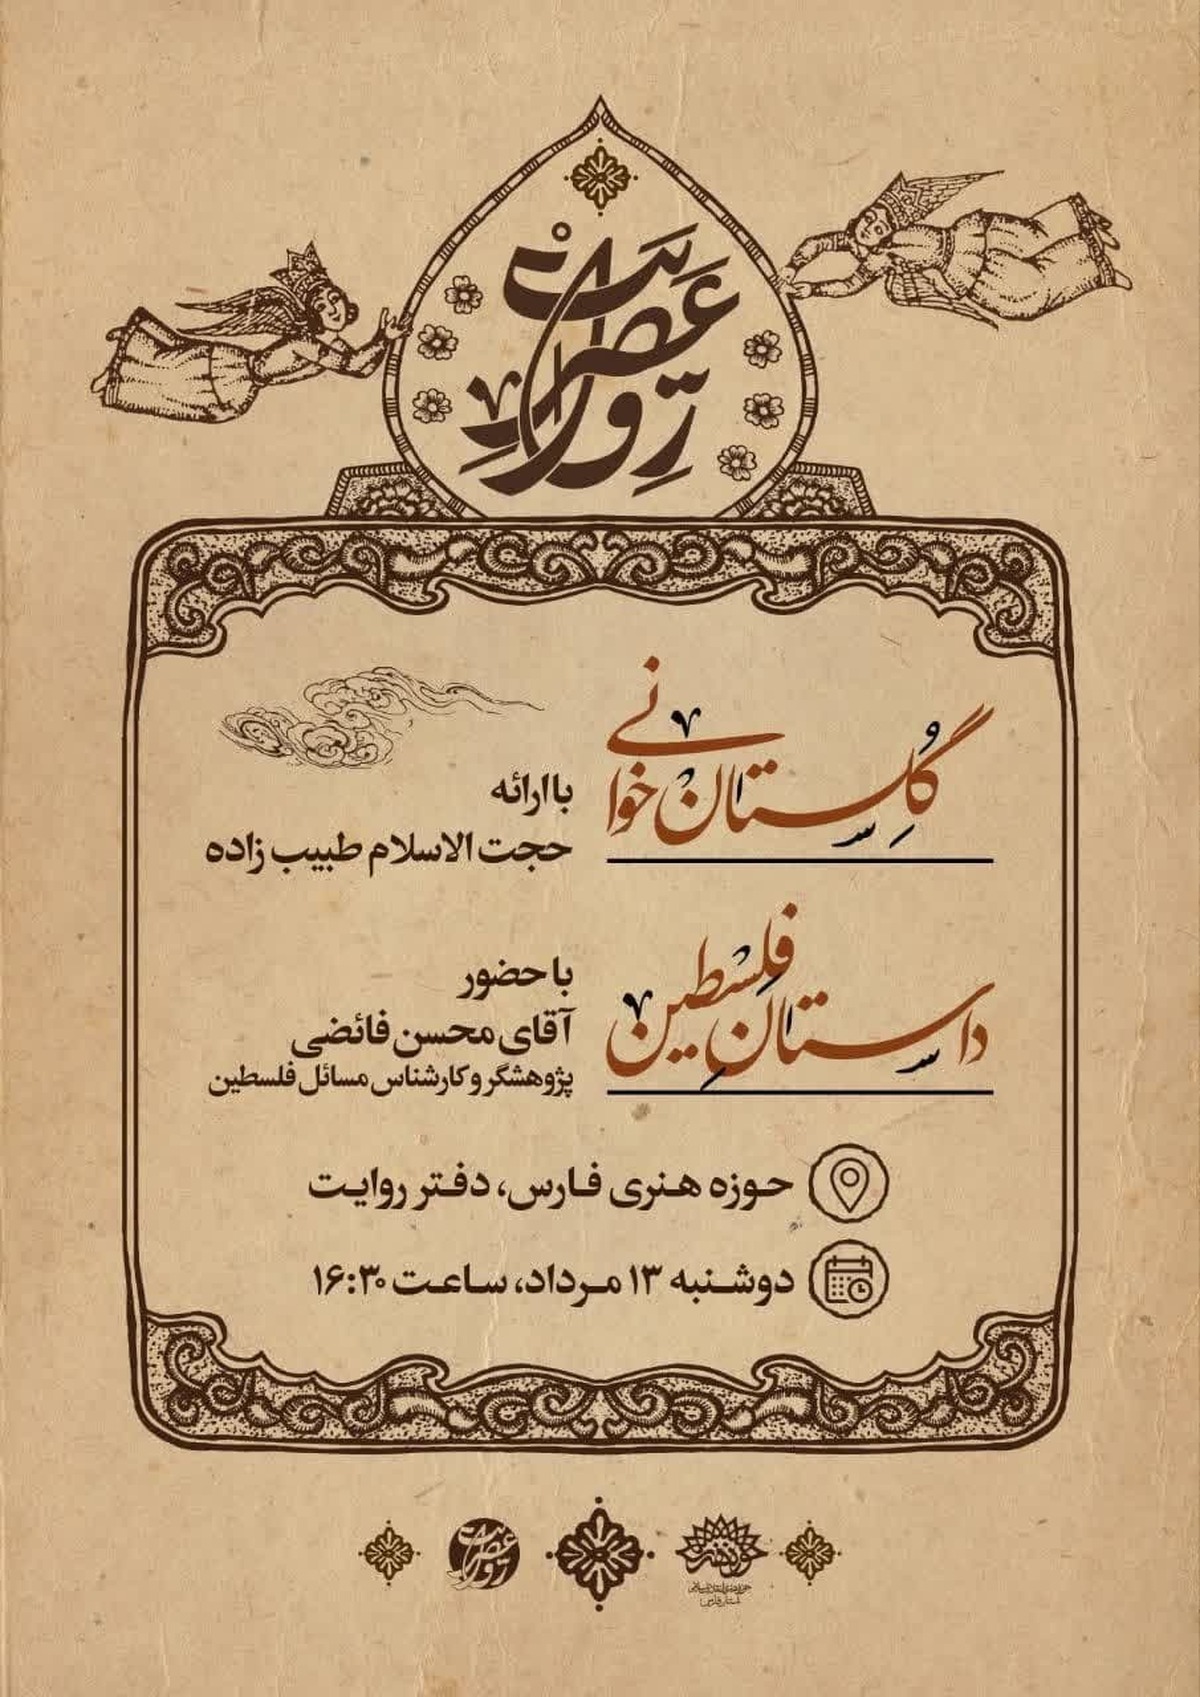 عصر روایت
گلستان خوانی
با ارائه
حجت الاسلام طبیب زاده
داستان فلسطین
با حضور
آقای محسن فائضی
پژوهشگر و کارشناس مسائل فلسطین
حوزه هنری فارس، دفتر روایت
دوشنبه ۱۳ مرداد، ساعت ۱۶:۳۰
حوزه هنری
حوزه هنری انقلاب اسلامی
استان فارس
عصر روایت